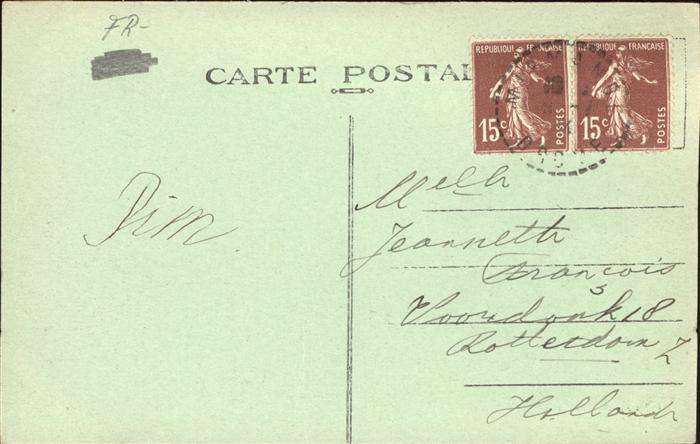 FR-
CARTE POSTALE
REPUBLIQUE FRANÇAISE
15c
POSTES
REPUBLIQUE FRANÇAISE
15c
POSTES
Pim
Melle
Jeanneth
François
18
Rotterdam Z
Holland